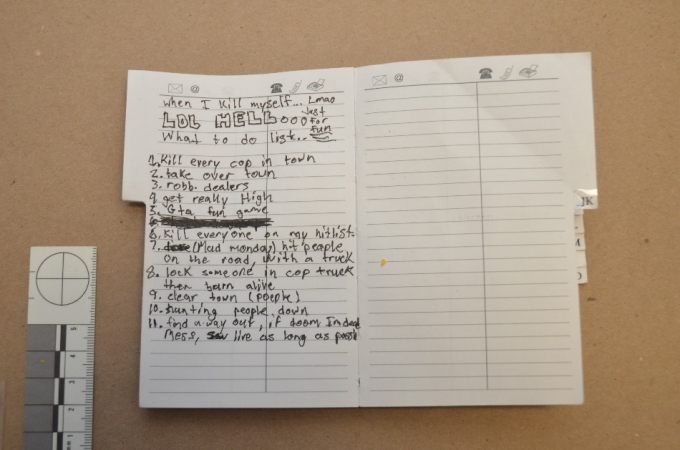 When I Kill myself... Lmao
LOL HELL ooo Just for fun
What to do list...
1. Kill every cop in town
2. take over town
3. robb dealers
4. get really High
5. Gta fun game
6. Kill everyone on my hitlist
7. (Mad monday) hit people
on the road, with a truck
8. lock someone in cop truck
then burn alive
9. clear town (poeple)
10. hunting people down
11. find a way out, if doom Im
Mess, live as long as
@
@